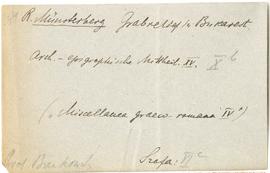 R. Münsterberg Grabrelief in Bukarest
Arch.-epigraphische Mittheil. XV. X b
("Miscellanea graeco-romana IV")
Szafa: VI c